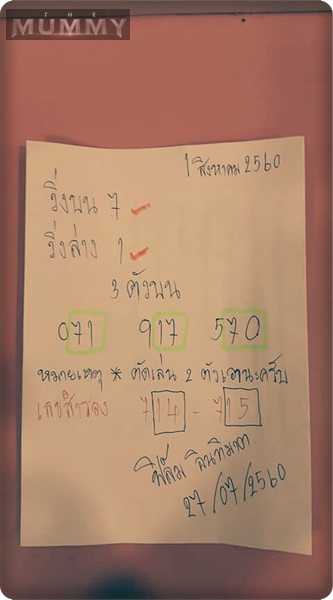 THE
MUMMY
1 สิงหาคม 2560
วิ่งบน 7
วิ่งล่าง 1
3 ตัวบน
071 917 570
หมายเหตุ * ตัดเล่น 2 ตัวเอานะครับ
เลขสำรอง 714 - 715
27/07/2560